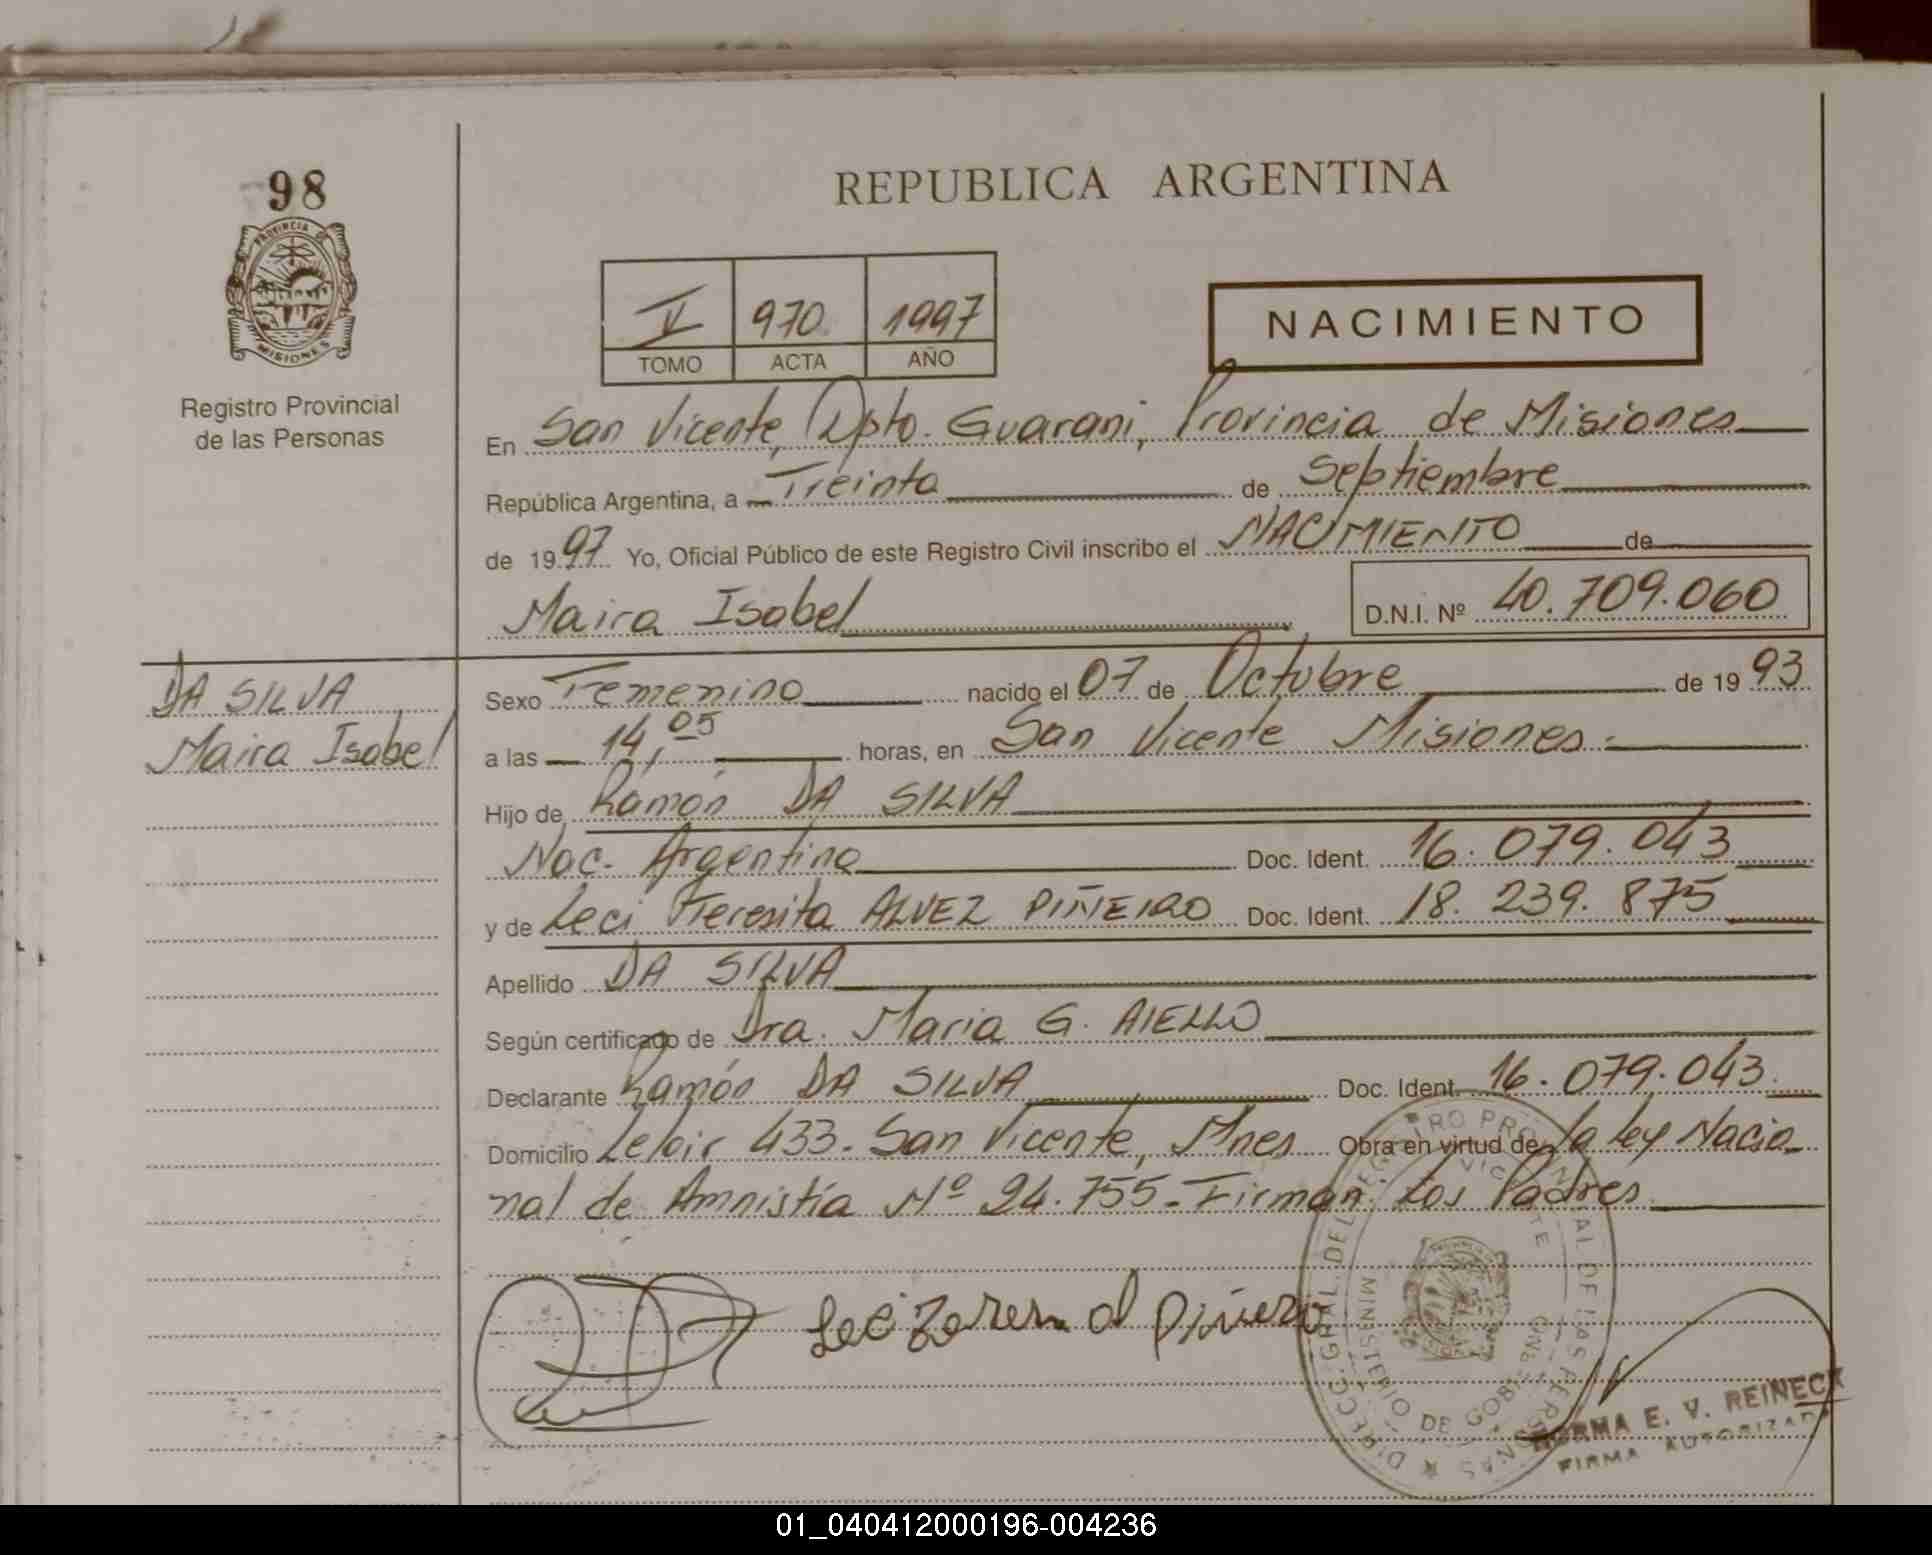 98
PROVINCIA DE
MISIONES
Registro Provincial
de las Personas
REPUBLICA ARGENTINA
V 970 1997
TOMO ACTA AÑO
NACIMIENTO
En San Vicente, Dpto. Guarani, Provincia de Misiones
República Argentina, a Treinta de Septiembre
de 1997 Yo, Oficial Público de este Registro Civil inscribo el NACIMIENTO de
Maira Isabel D.N.I. Nº 40.709.060
DA SILVA
Maira Isabel
Sexo Femenino nacido el 07 de Octubre de 1993
a las 14,05 horas, en San Vicente Misiones.
Hijo de Ramón DA SILVA
Nac. Argentina Doc. Ident. 16.079.043
y de Leci Teresita ALVEZ PIÑEIRO Doc. Ident. 18.239.875
Apellido DA SILVA
Según certificado de Dra. Maria G. AIELLO
Declarante Ramón DA SILVA Doc. Ident. 16.079.043
Domicilio Leloir 433. San Vicente, Mnes Obra en virtud de la ley Nacio
nal de Amnistía Nº 24.755. Firman: Los Padres
DIRECC. GRAL. DEL REGISTRO PROVINCIAL DE LAS PERSONAS
VICENTE
MINISTERIO DE GOBIERNO
NORMA E. V. REINECK
FIRMA AUTORIZADA
01_040412000196-004236